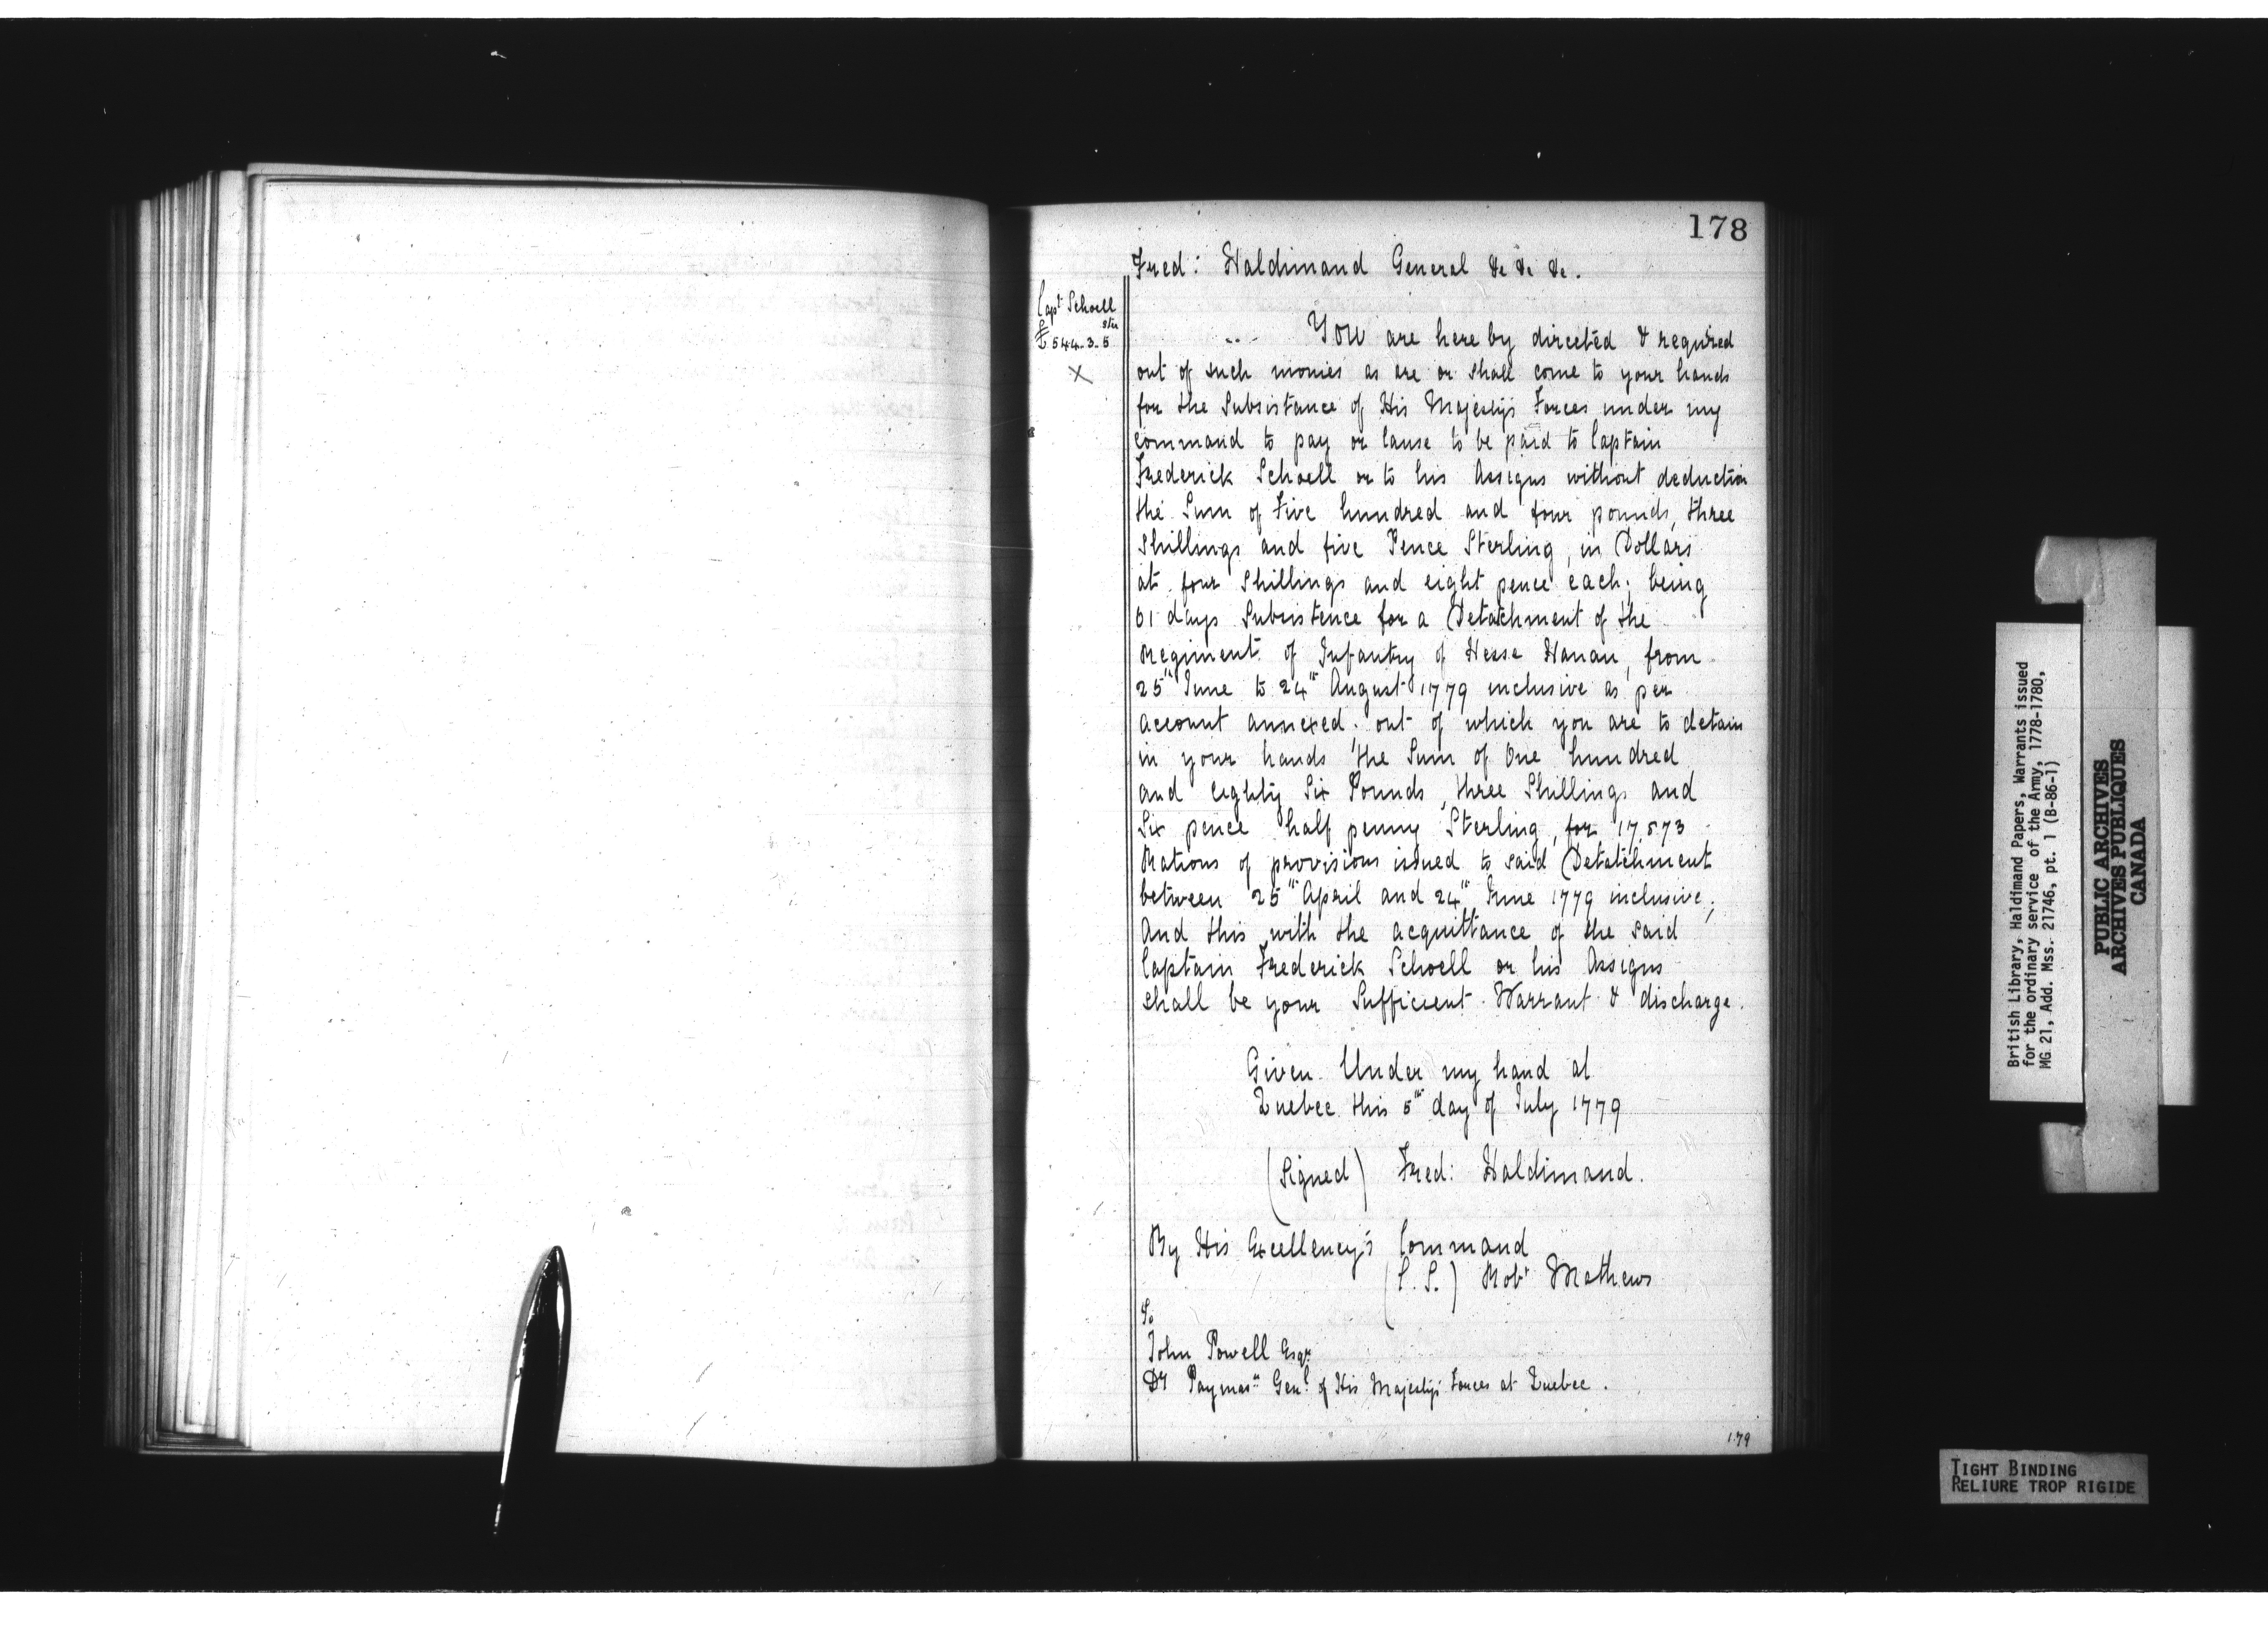 178
Fred: Haldimand General &c &c &c.
Capt Schoell
Ster
£544-3-5
X
You are here by directed & required
out of such monies as are or shall come to your hands
for the Subsistance of His Majesty's Forces under my
command to pay or Cause to be paid to Captain
Frederick Schoell or to his Assigns without deduction
the Sum of Five hundred and four pounds, three
Shillings and five Pence Sterling, in Dollars
at four Shillings and eight pence each; being
61 days Subsistence for a Detatchment of the
Regiment of Infantry of Hesse Hanau, from
25th June to 24th August 1779 inclusive as per
account annexed. out of which you are to detain
in your hands the Sum of One hundred
and eighty Six Pounds, three Shillings and
Six pence half penny Sterling, for 17,873
Rations of provisions issued to said Detatchment
between 25th April and 24th June 1779 inclusive;
And this with the acquittance of the said
Captain Frederick Schoell or his Assigns
shall be your Sufficient Warrant & discharge.
Given Under my hand at
Quebec this 5th day of July 1779
(Signed) Fred: Haldimand.
By His Excellency's Command
(L.S.) Robt Mathews
To
John Powell Esqr
Dy Paymasr Genl of His Majesty's Forces at Quebec.
179
British Library, Haldimand Papers, Warrants issued
for the ordinary service of the Army, 1778-1780,
MG 21, Add. Mss. 21746, pt. 1 (B-86-1)
PUBLIC ARCHIVES
ARCHIVES PUBLIQUES
CANADA
TIGHT BINDING
RELIURE TROP RIGIDE